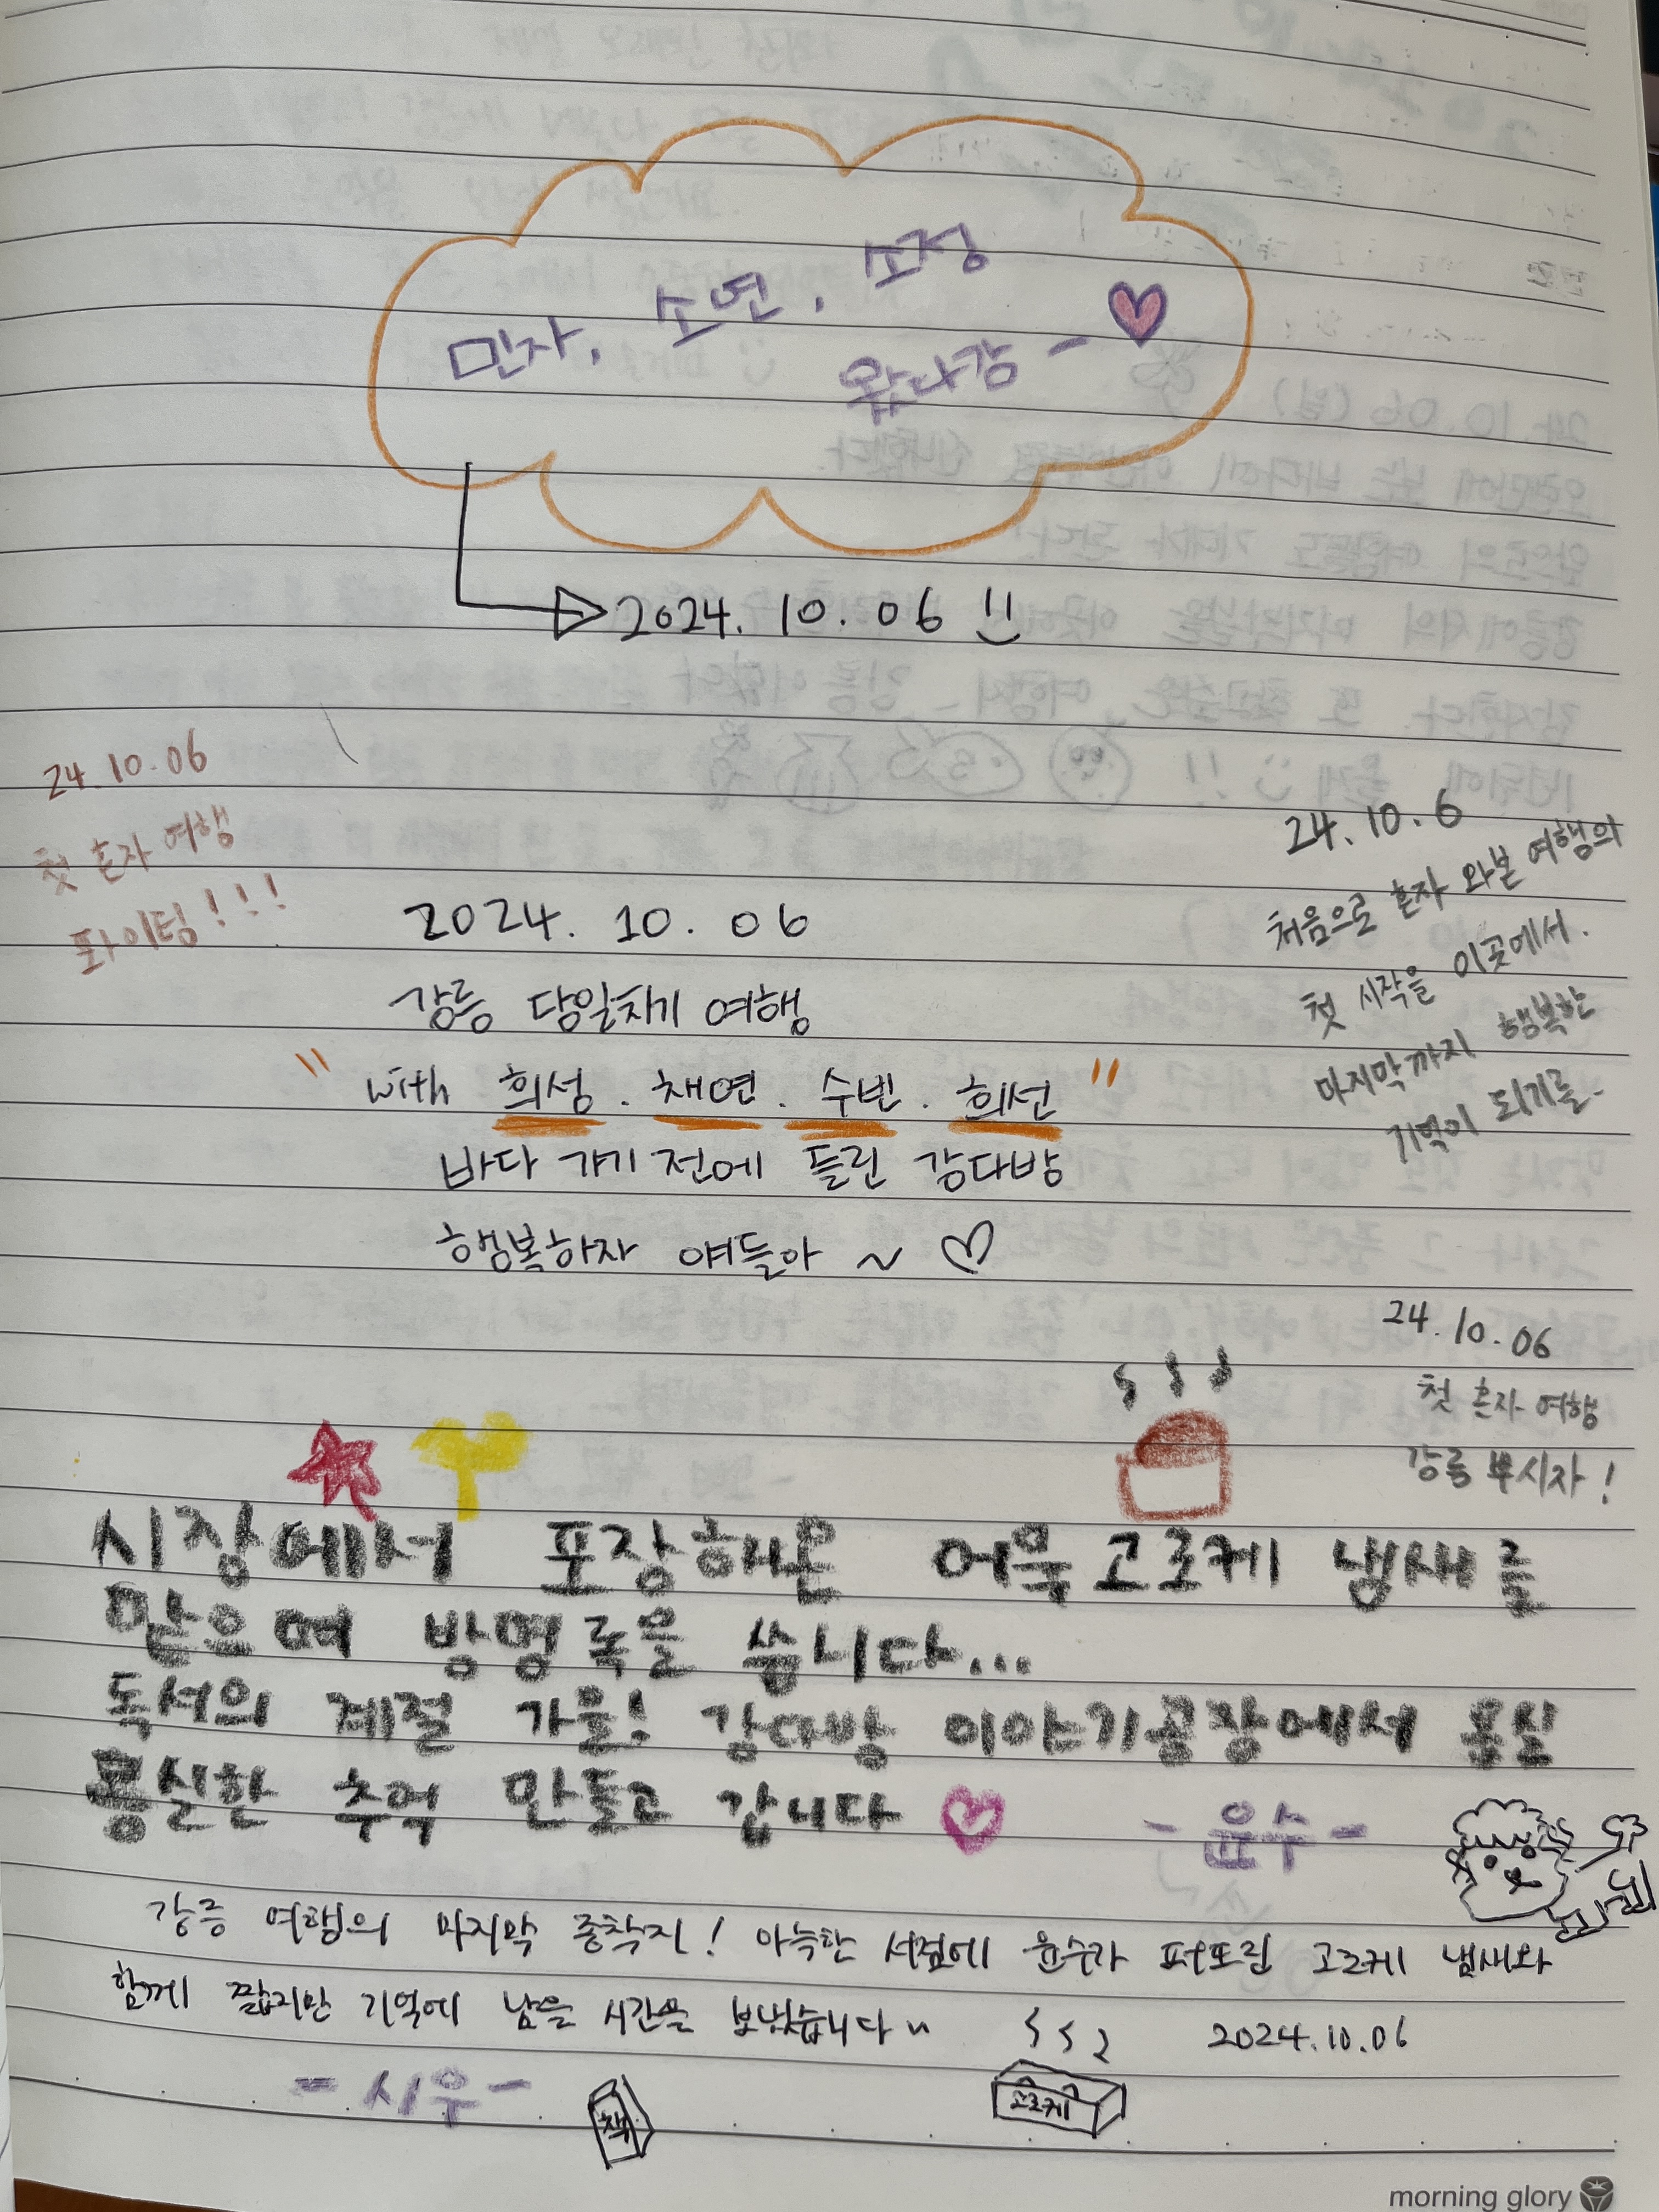 민자, 소연, 소정
왔다강 -
2024. 10. 06
24. 10. 06
첫 혼자 여행
화이팅!!!
24. 10. 6
처음으로 혼자 와본 여행의
첫 시작을 이곳에서.
마지막까지 행복한
기억이 되기를-
2024. 10. 06
강릉 당일치기 여행
" with 희성. 채연. 수빈. 희선 "
바다 가기 전에 들린 강다방
행복하자 얘들아 ~ ♡
24. 10. 06
첫 혼자 여행
강릉 뿌시자!
시장에서 포장해온 어묵고로케 냄새를
맡으며 방명록을 씁니다...
독서의 계절 가을! 강다방 이야기공장에서 몽실
몽실한 추억 만들고 갑니다
- 윤수 -
강릉 여행의 마지막 종착지! 아늑한 서점에 윤수가 퍼뜨린 고로케 냄새와
함께 짧지만 기억에 남을 시간을 보냈습니다~
2024.10.06
- 시우 -
책
고로케
morning glory